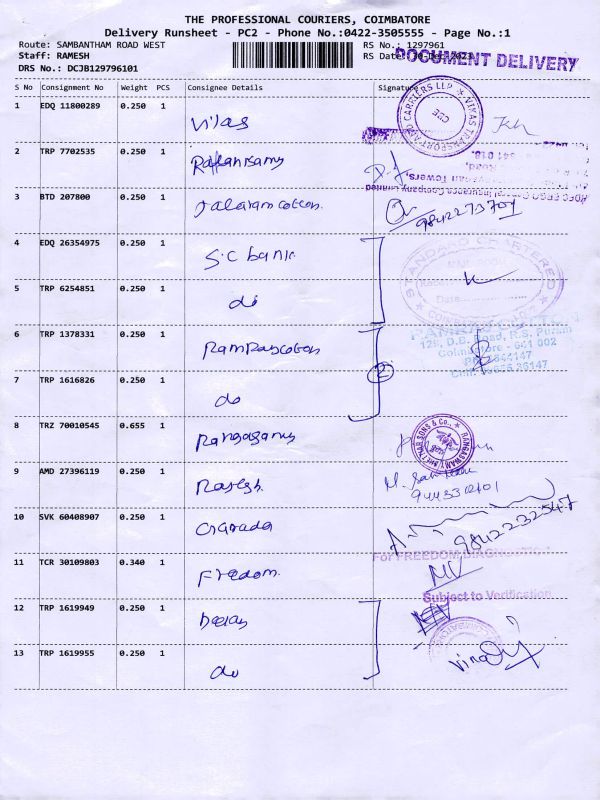 THE PROFESSIONAL COURIERS, COIMBATORE
Delivery Runsheet - PC2 - Phone No.:0422-3505555 - Page No.:1
Route: SAMBANTHAM ROAD WEST RS No.: 1297961
Staff: RAMESH RS Date:
DOCUMENT DELIVERY
DRS No.: DCJB129796101
S No Consignment No Weight PCS Consignee Details Signature
1 EDQ 11800289 0.250 1 Vilas
VIKAS TRANSPORT AND CARRIERS LLP CBE
2 TRP 7702535 0.250 1
3 BTD 207800 0.250 1 Jalaram cotton
9842273701
4 EDQ 26354975 0.250 1 S.C bank
STANDARD CHARTERED
Date
5 TRP 6254851 0.250 1 do
6 TRP 1378331 0.250 1 Ramraj cotton
RAMRAJ COTTON
129, D.B. Road, R.S. Puram
Coimbatore - 641 002
7 TRP 1616826 0.250 1 do
2
8 TRZ 70010545 0.655 1 Rangasamy
9 AMD 27396119 0.250 1 Rajesh
10 SVK 60408907 0.250 1
9842232547
11 TCR 30109803 0.340 1 Freedom
For FREEDOM DIAGNOSTIC
Subject to Verification
12 TRP 1619949 0.250 1
13 TRP 1619955 0.250 1 do